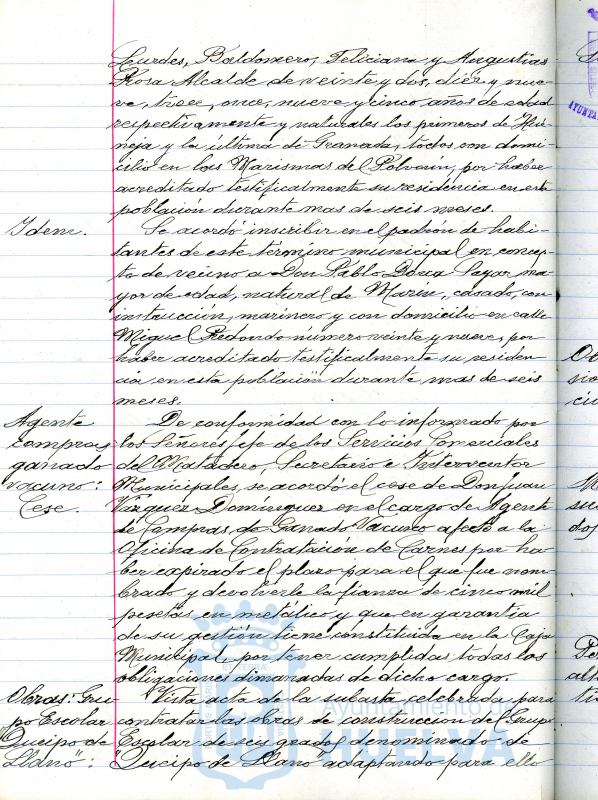 Lurdes, Baldomero, Feliciana y Angustias
Rosa Alcalde de veinte y dos, diez y nue-
ve, trece, once, nueve y cinco años de edad
respectivamente y naturales los primeros de Hue-
neja y la última de Granada, todos con domi-
cilio en las Marismas del Polvorín, por haber
acreditado testificalmente su residencia en esta
población durante mas de seis meses.
Idem.
Se acordó inscribir en el padrón de habi-
tantes de este término municipal en concep-
to de vecino a Don Pablo Layar ma-
yor de edad, natural de Marín, casado, con
instrucción, marinero y con domicilio en calle
Miguel Redondo número veinte y nueve, por
haber acreditado testificalmente su residen-
cia en esta población durante mas de seis
meses.
Agente
compras
ganado
vacuno:
Cese.
De conformidad con lo informado por
los Señores Jefe de los Servicios Comerciales
del Matadero, Secretario e Interventor
Municipales, se acordó el cese de Don Juan
Vázquez Domínguez en el cargo de Agente
de Compras de Ganado Vacuno afecto a la
Oficina de Contratación de Carnes por ha-
ber expirado el plazo para el que fue nom-
brado y devolverle la fianza de cinco mil
pesetas en metálico y que en garantia
de su gestión tiene constituida en la Caja
Municipal, por tener cumplidas todas las
obligaciones dimanadas de dicho cargo.
Obras: Gru-
po Escolar
"Queipo de
Llano":
Vista acta de la subasta celebrada para
contratar las obras de construcción del Grupo
Escolar de seis grados denominado de
"Queipo de Llano" adaptando para ello
Ayuntamiento de
HUELVA